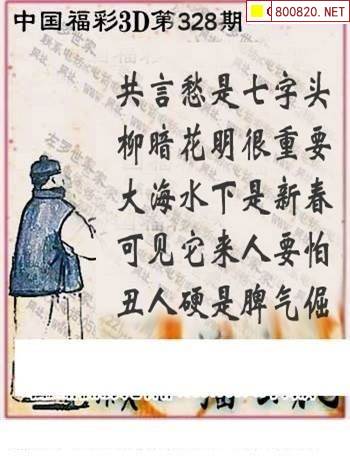 中国福彩3D第328期
800820.NET
共言愁是七字头
柳暗花明很重要
大海水下是新春
可见它来人要怕
丑人硬是脾气倔